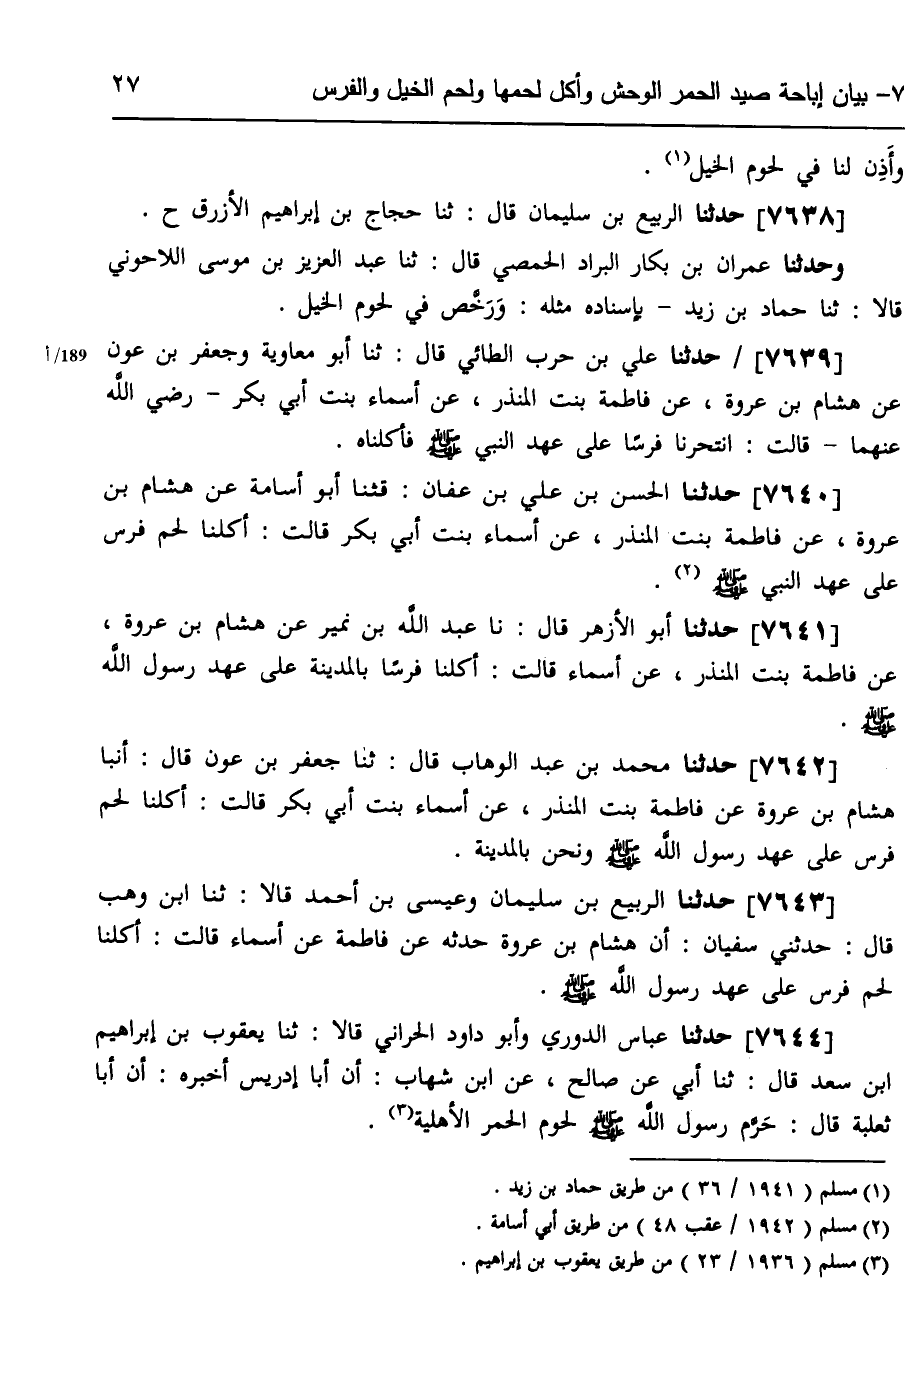 ٧- بيان إباحة صيد الحمر الوحش وأكل لحمها ولحم الخيل والفرس ٢٧
وأَذِن لنا في لحوم الخيل(١) .
[٧٦٣٨] حدثنا الربيع بن سليمان قال : ثنا حجاج بن إبراهيم الأزرق ح .
وحدثنا عمران بن بكار البراد الحمصي قال : ثنا عبد العزيز بن موسى اللاحوني
قالا : ثنا حماد بن زيد - بإسناده مثله : وَرَخَّص في لحوم الخيل .
[٧٦٣٩] / حدثنا علي بن حرب الطائي قال : ثنا أبو معاوية وجعفر بن عون 189/أ
عن هشام بن عروة ، عن فاطمة بنت المنذر ، عن أسماء بنت أبي بكر - رضي اللَّه
عنهما - قالت : انتحرنا فرسًا على عهد النبي ﷺ فأكلناه .
[٧٦٤٠] حدثنا الحسن بن علي بن عفان : قثنا أبو أسامة عن هشام بن
عروة ، عن فاطمة بنت المنذر ، عن أسماء بنت أبي بكر قالت : أكلنا لحم فرس
على عهد النبي ﷺ (٢) .
[٧٦٤١] حدثنا أبو الأزهر قال : نا عبد اللَّه بن نمير عن هشام بن عروة ،
عن فاطمة بنت المنذر ، عن أسماء قالت : أكلنا فرسًا بالمدينة على عهد رسول اللَّه
ﷺ .
[٧٦٤٢] حدثنا محمد بن عبد الوهاب قال : ثنا جعفر بن عون قال : أنبا
هشام بن عروة عن فاطمة بنت المنذر ، عن أسماء بنت أبي بكر قالت : أكلنا لحم
فرس على عهد رسول اللَّه ﷺ ونحن بالمدينة .
[٧٦٤٣] حدثنا الربيع بن سليمان وعيسى بن أحمد قالا : ثنا ابن وهب
قال : حدثني سفيان : أن هشام بن عروة حدثه عن فاطمة عن أسماء قالت : أكلنا
لحم فرس على عهد رسول اللَّه ﷺ .
[٧٦٤٤] حدثنا عباس الدوري وأبو داود الحراني قالا : ثنا يعقوب بن إبراهيم
ابن سعد قال : ثنا أبي عن صالح ، عن ابن شهاب : أن أبا إدريس أخبره : أن أبا
ثعلبة قال : حَرَّم رسول اللَّه ﷺ لحوم الحمر الأهلية(٣) .
(١) مسلم ( ١٩٤١ / ٣٦ ) من طريق حماد بن زيد .
(٢) مسلم ( ١٩٤٢ / عقب ٤٨ ) من طريق أبي أسامة .
(٣) مسلم ( ١٩٣٦ / ٢٣ ) من طريق يعقوب بن إبراهيم .